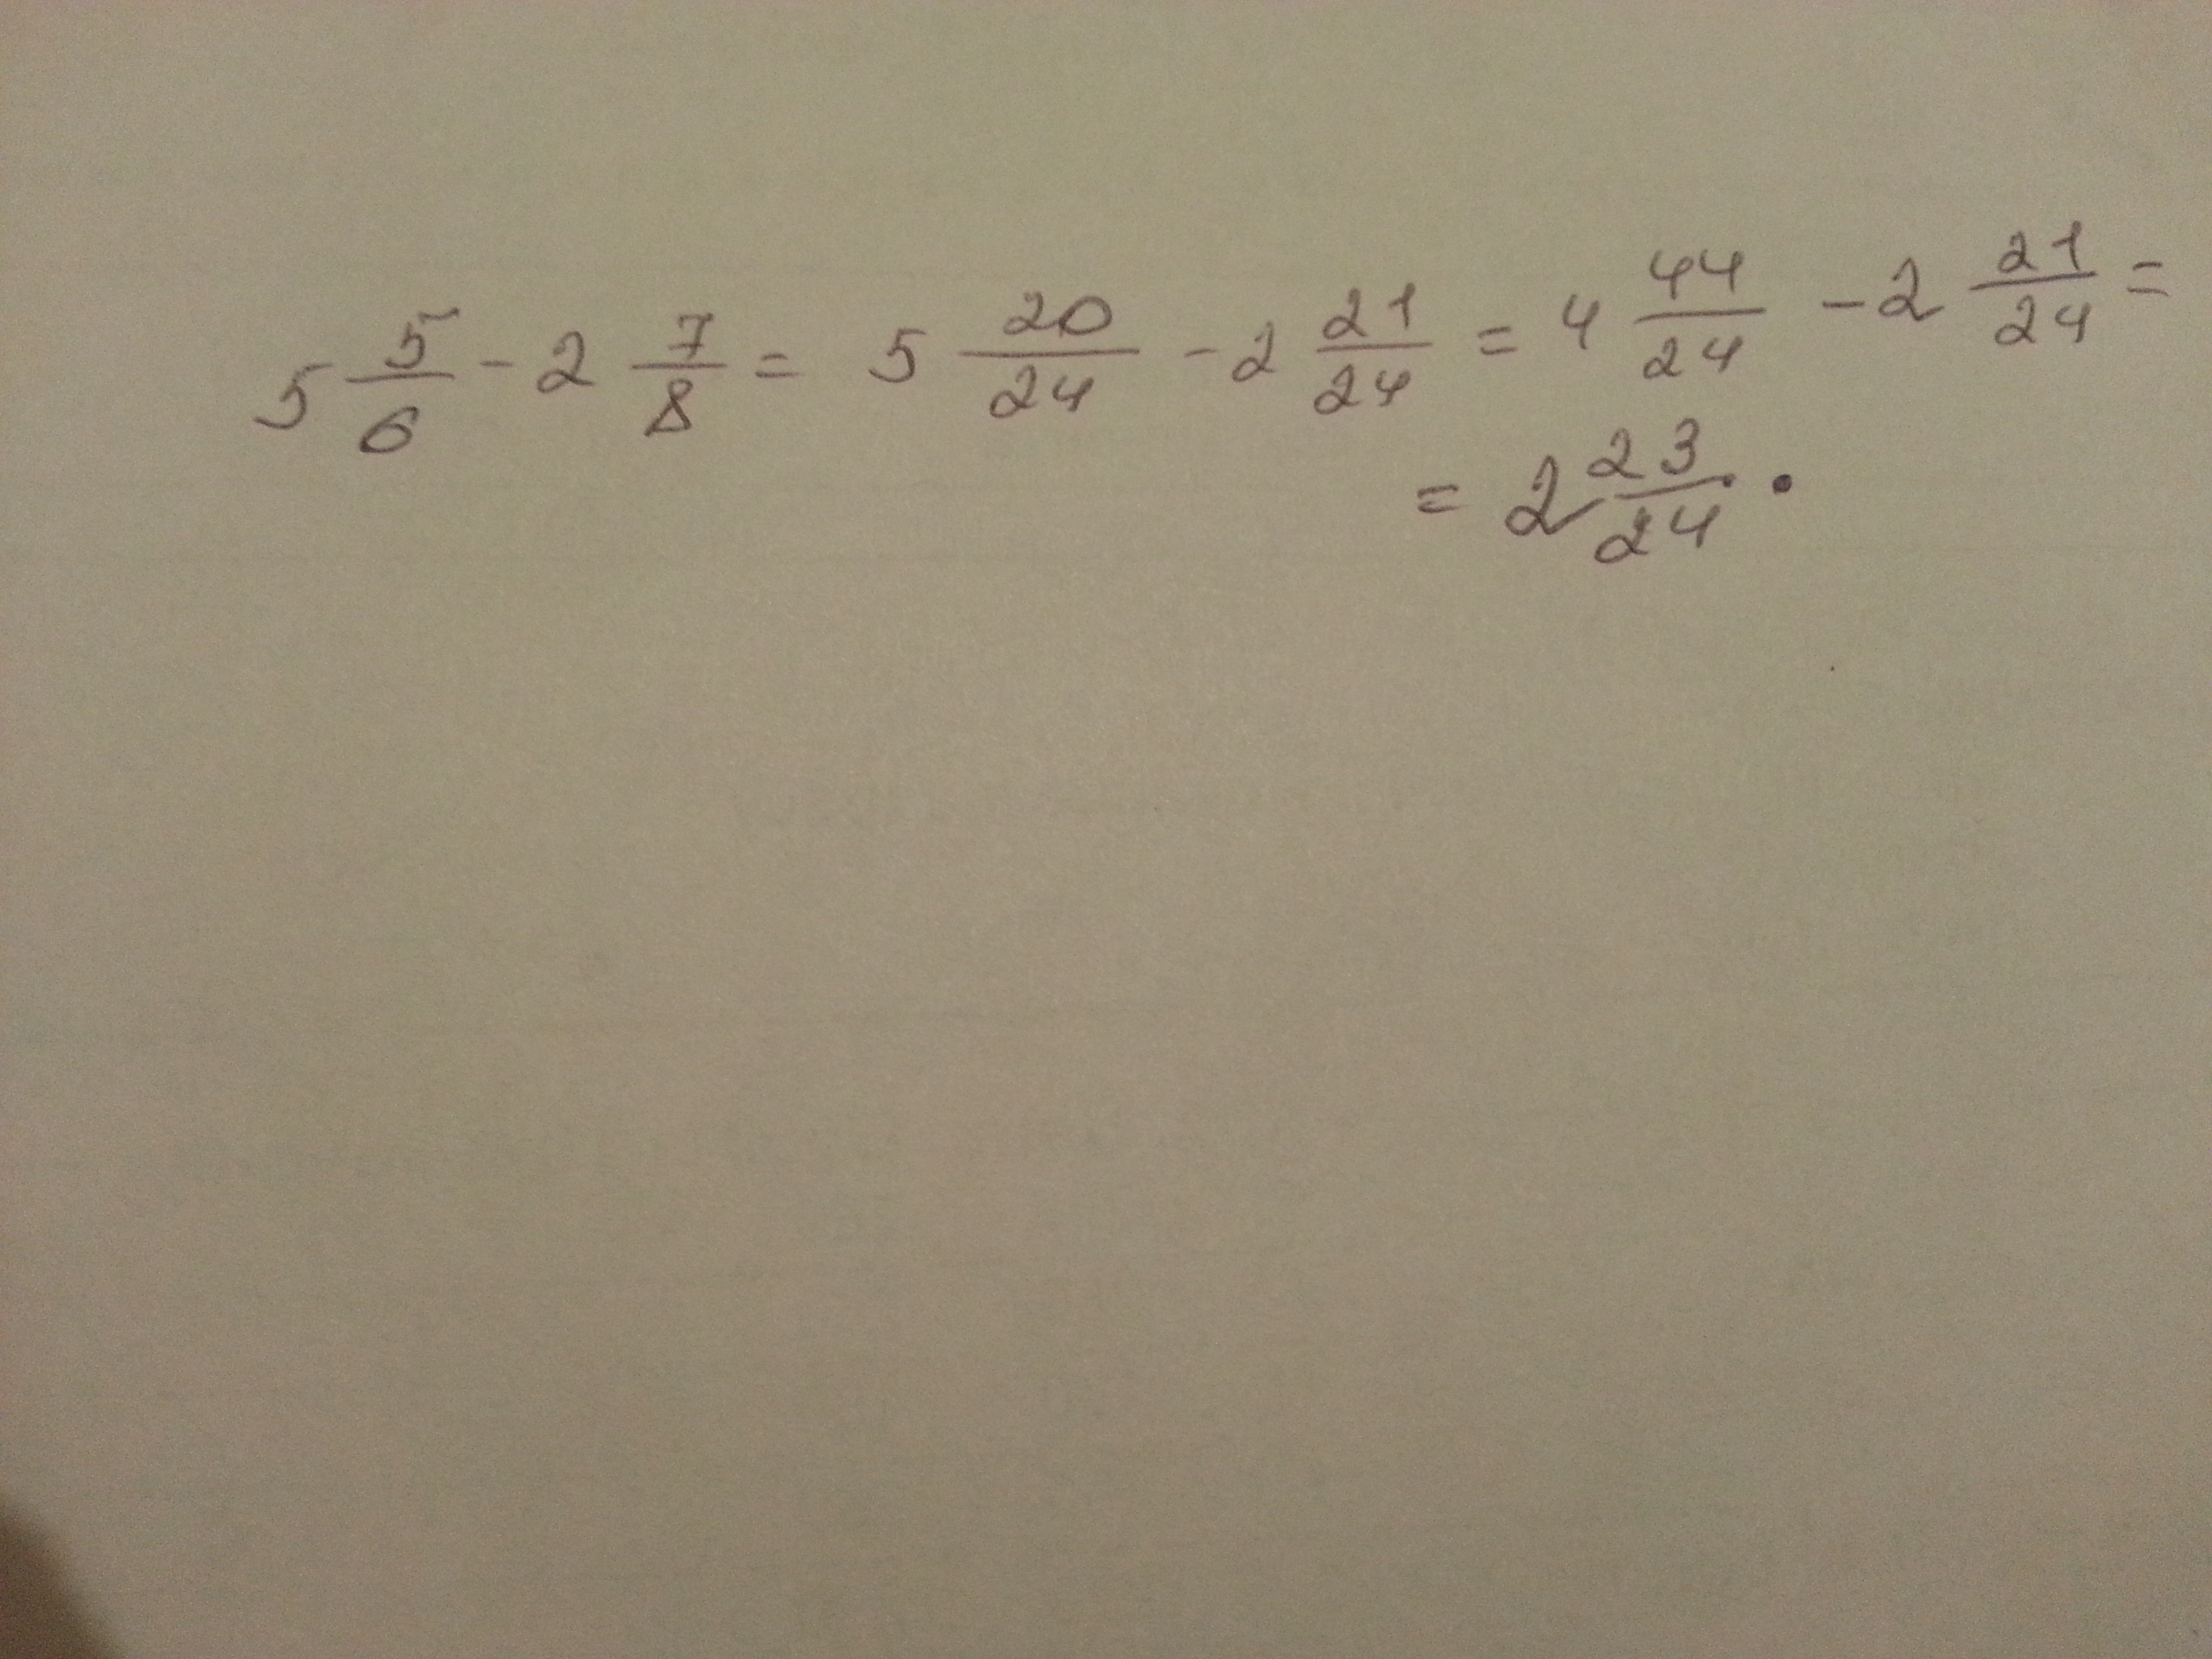 5 5/6 - 2 7/8 = 5 20/24 - 2 21/24 = 4 44/24 - 2 21/24 =
= 2 23/24 .